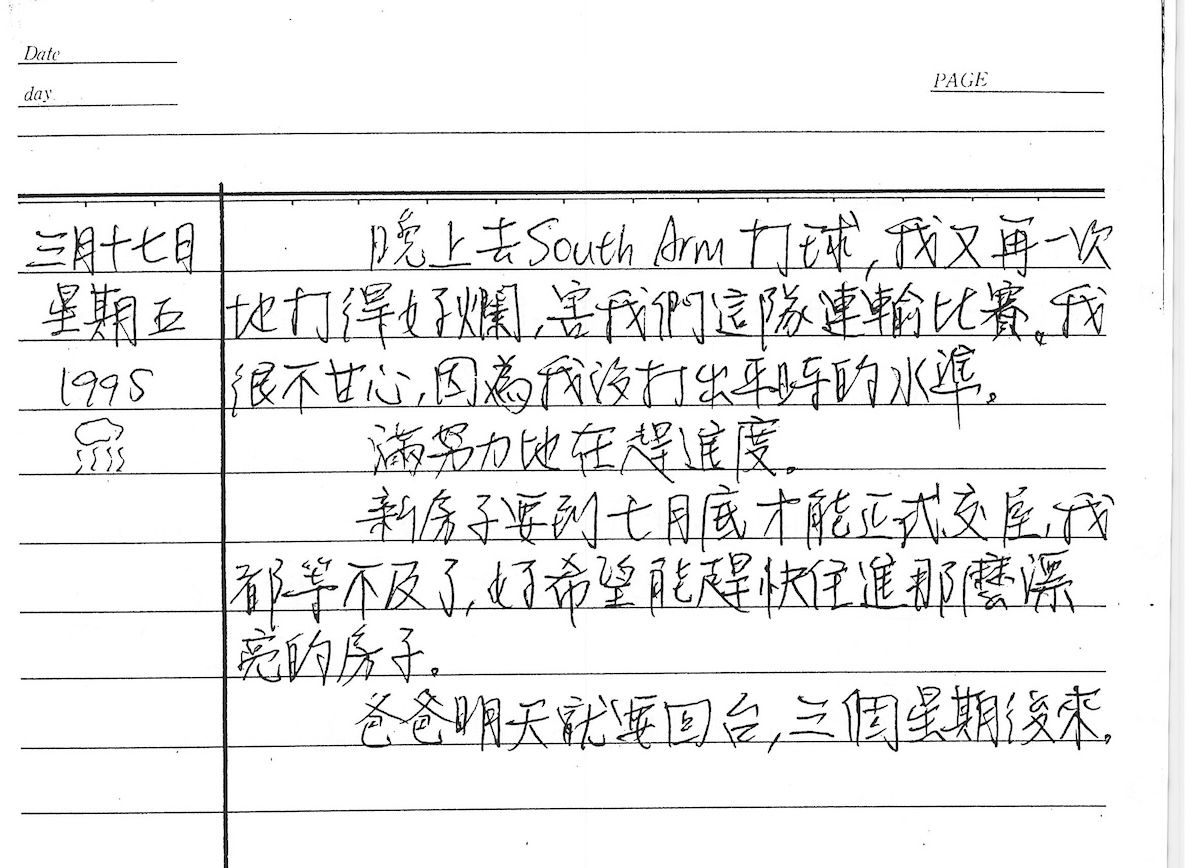 Date
day
PAGE
三月十七日
星期五
1995
晚上去South Arm打球,我又再一次
地打得好爛,害我們這隊連輸比賽。我
很不甘心,因為我沒打出平時的水準。
滿努力地在趕進度。
新房子要到七月底才能正式交屋,我
都等不及了,好希望能趕快住進那麼漂
亮的房子。
爸爸明天就要回台,三個星期後來。